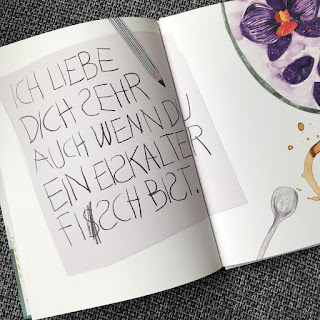 ICH LIEBE
DICH SEHR
AUCH WENN DU
EIN EISKALTER
FISCH BIST.